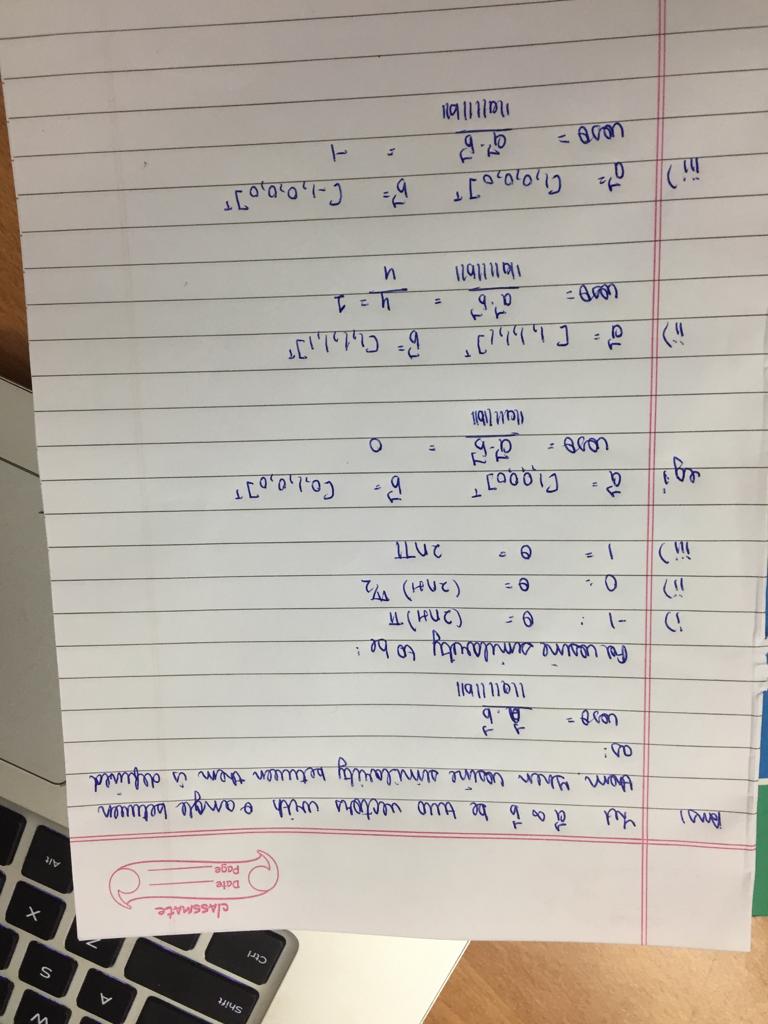 Shift
Ctrl
Alt
W
A
S
Z
X
classmate
Date
Page
Ans1 Let a⃗ & b⃗ be two vectors with θ angle between
them. Then cosine similarity between them is defined
as:
cosθ = a⃗.b⃗
||a||||b||
For cosine similarity to be:
i) -1 : θ = (2n+1)π
ii) 0 : θ = (2n+1) π/2
iii) 1 = θ = 2nπ
eg i a⃗ = [1,0,0,0]ᵀ b⃗ = [0,1,0,0]ᵀ
cosθ = a⃗.b⃗ = 0
||a||||b||
ii) a⃗ = [1,1,1,1]ᵀ b⃗ = [1,1,1,1]ᵀ
cosθ = a⃗.b⃗ = 4 = 1
||a||||b|| 4
iii) a⃗ = [1,0,0,0]ᵀ b⃗ = [-1,0,0,0]ᵀ
cosθ = a⃗.b⃗ = -1
||a||||b||